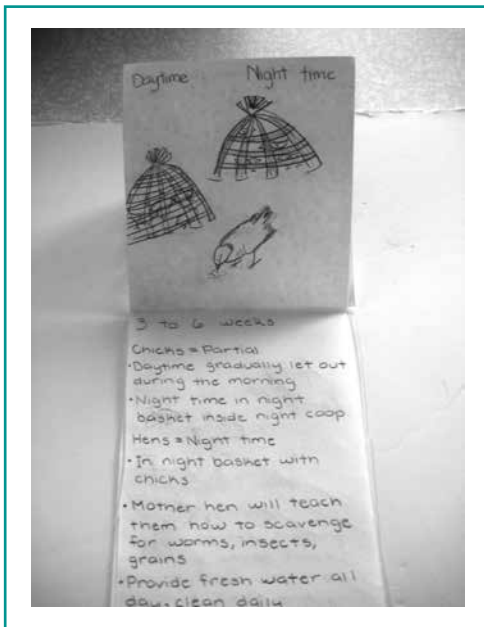 Daytime Night time
3 to 6 weeks
Chicks = Partial
• Daytime gradually let out
during the morning
• Night time in night
basket inside night coop.
Hens = Night time
• In night basket with
chicks
• Mother hen will teach
them how to scavenge
for worms, insects,
grains
• Provide fresh water all
day, clean daily